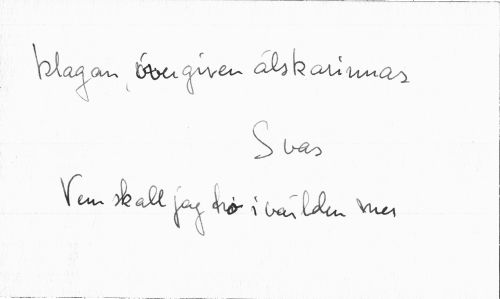 klagan, övergiven älskarinnas
Svas
Vem skall jag tro i världen mer